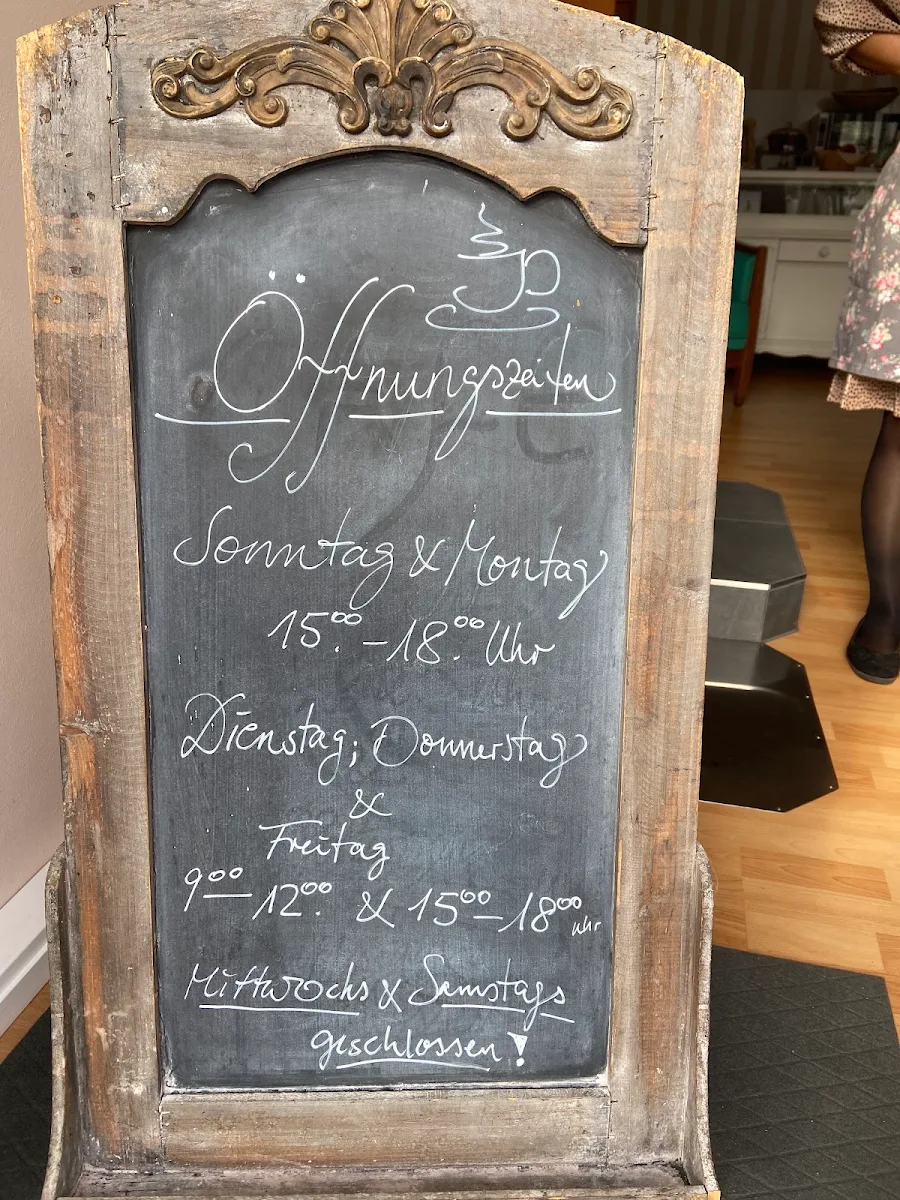 Öffnungszeiten
Sonntag & Montag
15.00 - 18.00 Uhr
Dienstag; Donnerstag
&
Freitag
9.00 - 12.00 & 15.00 - 18.00 Uhr
Mittwochs & Samstags
geschlossen!